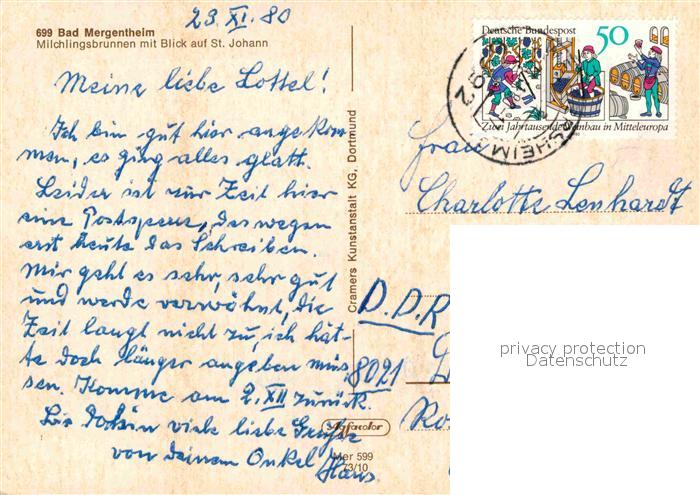 23. XI. 80
699 Bad Mergentheim
Milchlingsbrunnen mit Blick auf St. Johann
Meine liebe Lottel!
Ich bin gut hier angekom-
men, es ging alles glatt.
Leider ist zur Zeit hier
eine Postsperre, deswegen
erst heute das Schreiben.
Mir geht es sehr, sehr gut
und werde verwöhnt, die
Zeit langt nicht zu, ich hät-
te doch länger angeben müs-
sen. Komme am 2. XII zurück.
Bis dahin viele liebe Grüße
von Deinem Onkel
Hans
Cramers Kunstanstalt KG, Dortmund
Agfacolor
Mer 599
73/10
Deutsche Bundespost
50
Zwei Jahrtausende Weinbau in Mitteleuropa
Frau
Charlotte Lenhardt
D.D.R
8021
privacy protection
Datenschutz